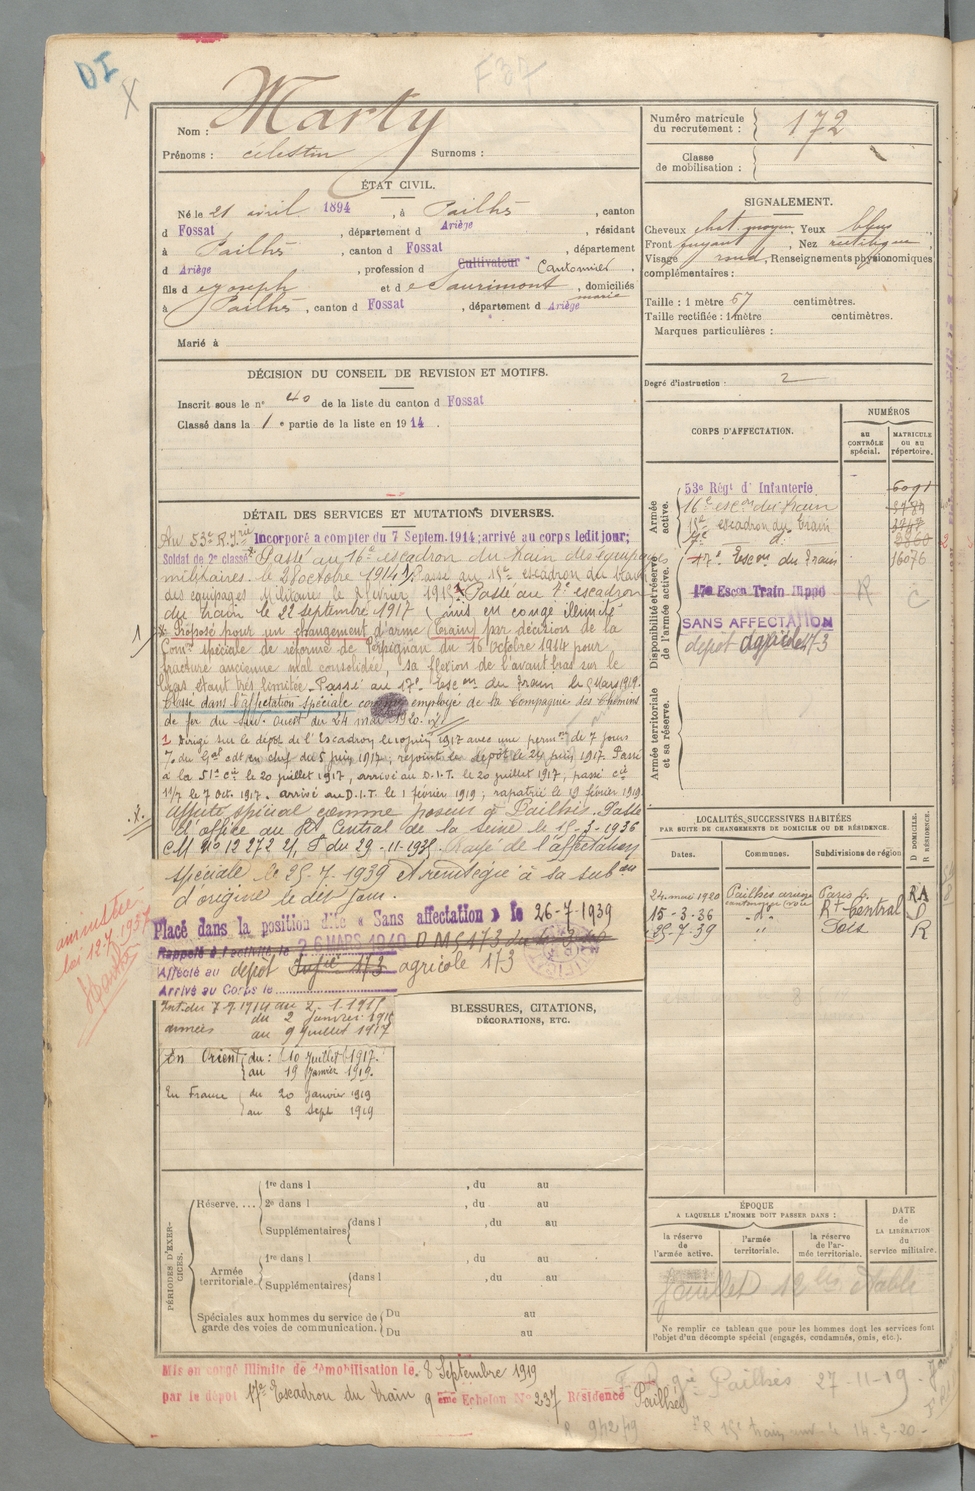 DI
X
F37
Nom : Marty
Prénoms : célestin Surnoms :
ÉTAT CIVIL.
Né le 21 avril 1894, à Pailhès, canton
d Fossat, département d Ariège, résidant
à Pailhès, canton d Fossat, département
d Ariège, profession d Cultivateur Cantonnier,
fils d Joseph et d Saurimont marie, domiciliés
à Pailhès, canton d Fossat, département d Ariège
Marié à
DÉCISION DU CONSEIL DE REVISION ET MOTIFS.
Inscrit sous le n° 40 de la liste du canton d Fossat
Classé dans la 1e partie de la liste en 1914.
DÉTAIL DES SERVICES ET MUTATIONS DIVERSES.
Au 53e R. Irie Incorporé a compter du 7 Septem. 1914; arrivé au corps ledit jour;
Soldat de 2e classe Passé au 16e escadron du train des équipages
militaires le 21 octobre 1914 Passé au 15e escadron du train
des équipages Militaires le février 1915 Passé au 7e escadron
du train le 22 septembre 1917 (mis en congé illimité
Proposé pour un changement d'arme (Train) par décision de la
Comon spéciale de réforme de Perpignan du 16 octobre 1914 pour
fracture ancienne mal consolidée, sa flexion de l'avant bras sur le
bras étant très limitée. Passé au 17e Escon du Train le 9 Mars 1919.
Classé dans l'affectation spéciale comme employé de la Compagnie des Chemins
de fer du Sud-Ouest du 24 mai 1920.
1 Dirigé sur le dépôt de l'Escadron le 10 juin 1917 avec une permon de 7 jours
du Gal cdt en chef du 5 juin 1917; rejoint le dépôt le 24 juin 1917. Passé
à la 51e cie le 20 juillet 1917, arrivé au D.I.T. le 20 juillet 1917, passé cie
11/7 le 7 oct. 1917. arrivé au D.I.T. le 1 février 1919; rapatrié le 19 février 1919
Affecté spécial comme poseur à Pailhès. Passé
d'office au Rt Central de la Seine le 15-3-1936
CM No 12272 21 du 29-11-1935. Rayé de l'affectation
spéciale le 25-7-1939 et réintégré à sa subon
d'origine le dit jour.
Placé dans la position dite « Sans affectation » le 26-7-1939
Rappelé à l'activité le 26 MARS 1940
Affecté au dépôt Infie 173 agricole 173
Arrivé au Corps le
amnistié
loi 12-7-1937
Int. du 7.9.1914 au 2.1.1915
armées du 2 janvier 1915
au 9 juillet 1917
En Orient du : 10 Juillet 1917.
au 19 Janvier 1919.
En France du 20 Janvier 1919
au 8 Sept 1919
BLESSURES, CITATIONS,
DÉCORATIONS, ETC.
PÉRIODES D'EXERCICES.
Réserve....
1re dans l , du au
2e dans l , du au
Supplémentaires dans l , du au
Armée territoriale.
1re dans l , du au
Supplémentaires dans l , du au
Spéciales aux hommes du service de garde des voies de communication.
Du au
Du au
Mis en congé illimité de démobilisation le 8 Septembre 1919
par le dépôt 17e Escadron du train 9 ème Echelon No 237 Résidence Pailhès
Numéro matricule
du recrutement : 172
Classe
de mobilisation :
SIGNALEMENT.
Cheveux chat. moyen, Yeux bleus,
Front fuyant, Nez rectiligne,
Visage rond, Renseignements physionomiques
complémentaires :
Taille : 1 mètre 67 centimètres.
Taille rectifiée : 1 mètre centimètres.
Marques particulières :
Degré d'instruction : 2
CORPS D'AFFECTATION.
NUMÉROS
AU CONTRÔLE spécial.
MATRICULE OU AU répertoire.
Armée active.
53e Régt d'Infanterie 6091
16e escon du train
15e escadron du train
7e d°
Disponibilité et réserve de l'armée active.
17e Escon du Train 16076
17e Escon Train Hippo R C
SANS AFFECTATION
dépôt agricole 173
Armée territoriale et sa réserve.
LOCALITÉS SUCCESSIVES HABITÉES
PAR SUITE DE CHANGEMENTS DE DOMICILE OU DE RÉSIDENCE.
Dates. Communes. Subdivisions de région
D DOMICILE. R RÉSIDENCE.
24 mai 1920 Pailhès Paris RA
15-3-36 d° Rt Central
25-7-39 " Foix R
ÉPOQUE
A LAQUELLE L'HOMME DOIT PASSER DANS :
la réserve de l'armée active.
l'armée territoriale.
la réserve de l'armée territoriale.
DATE de LA LIBÉRATION du service militaire.
Ne remplir ce tableau que pour les hommes dont les services font
l'objet d'un décompte spécial (engagés, condamnés, omis, etc.).
Pailhès 27-11-19
R 9/12/19
14-3-20